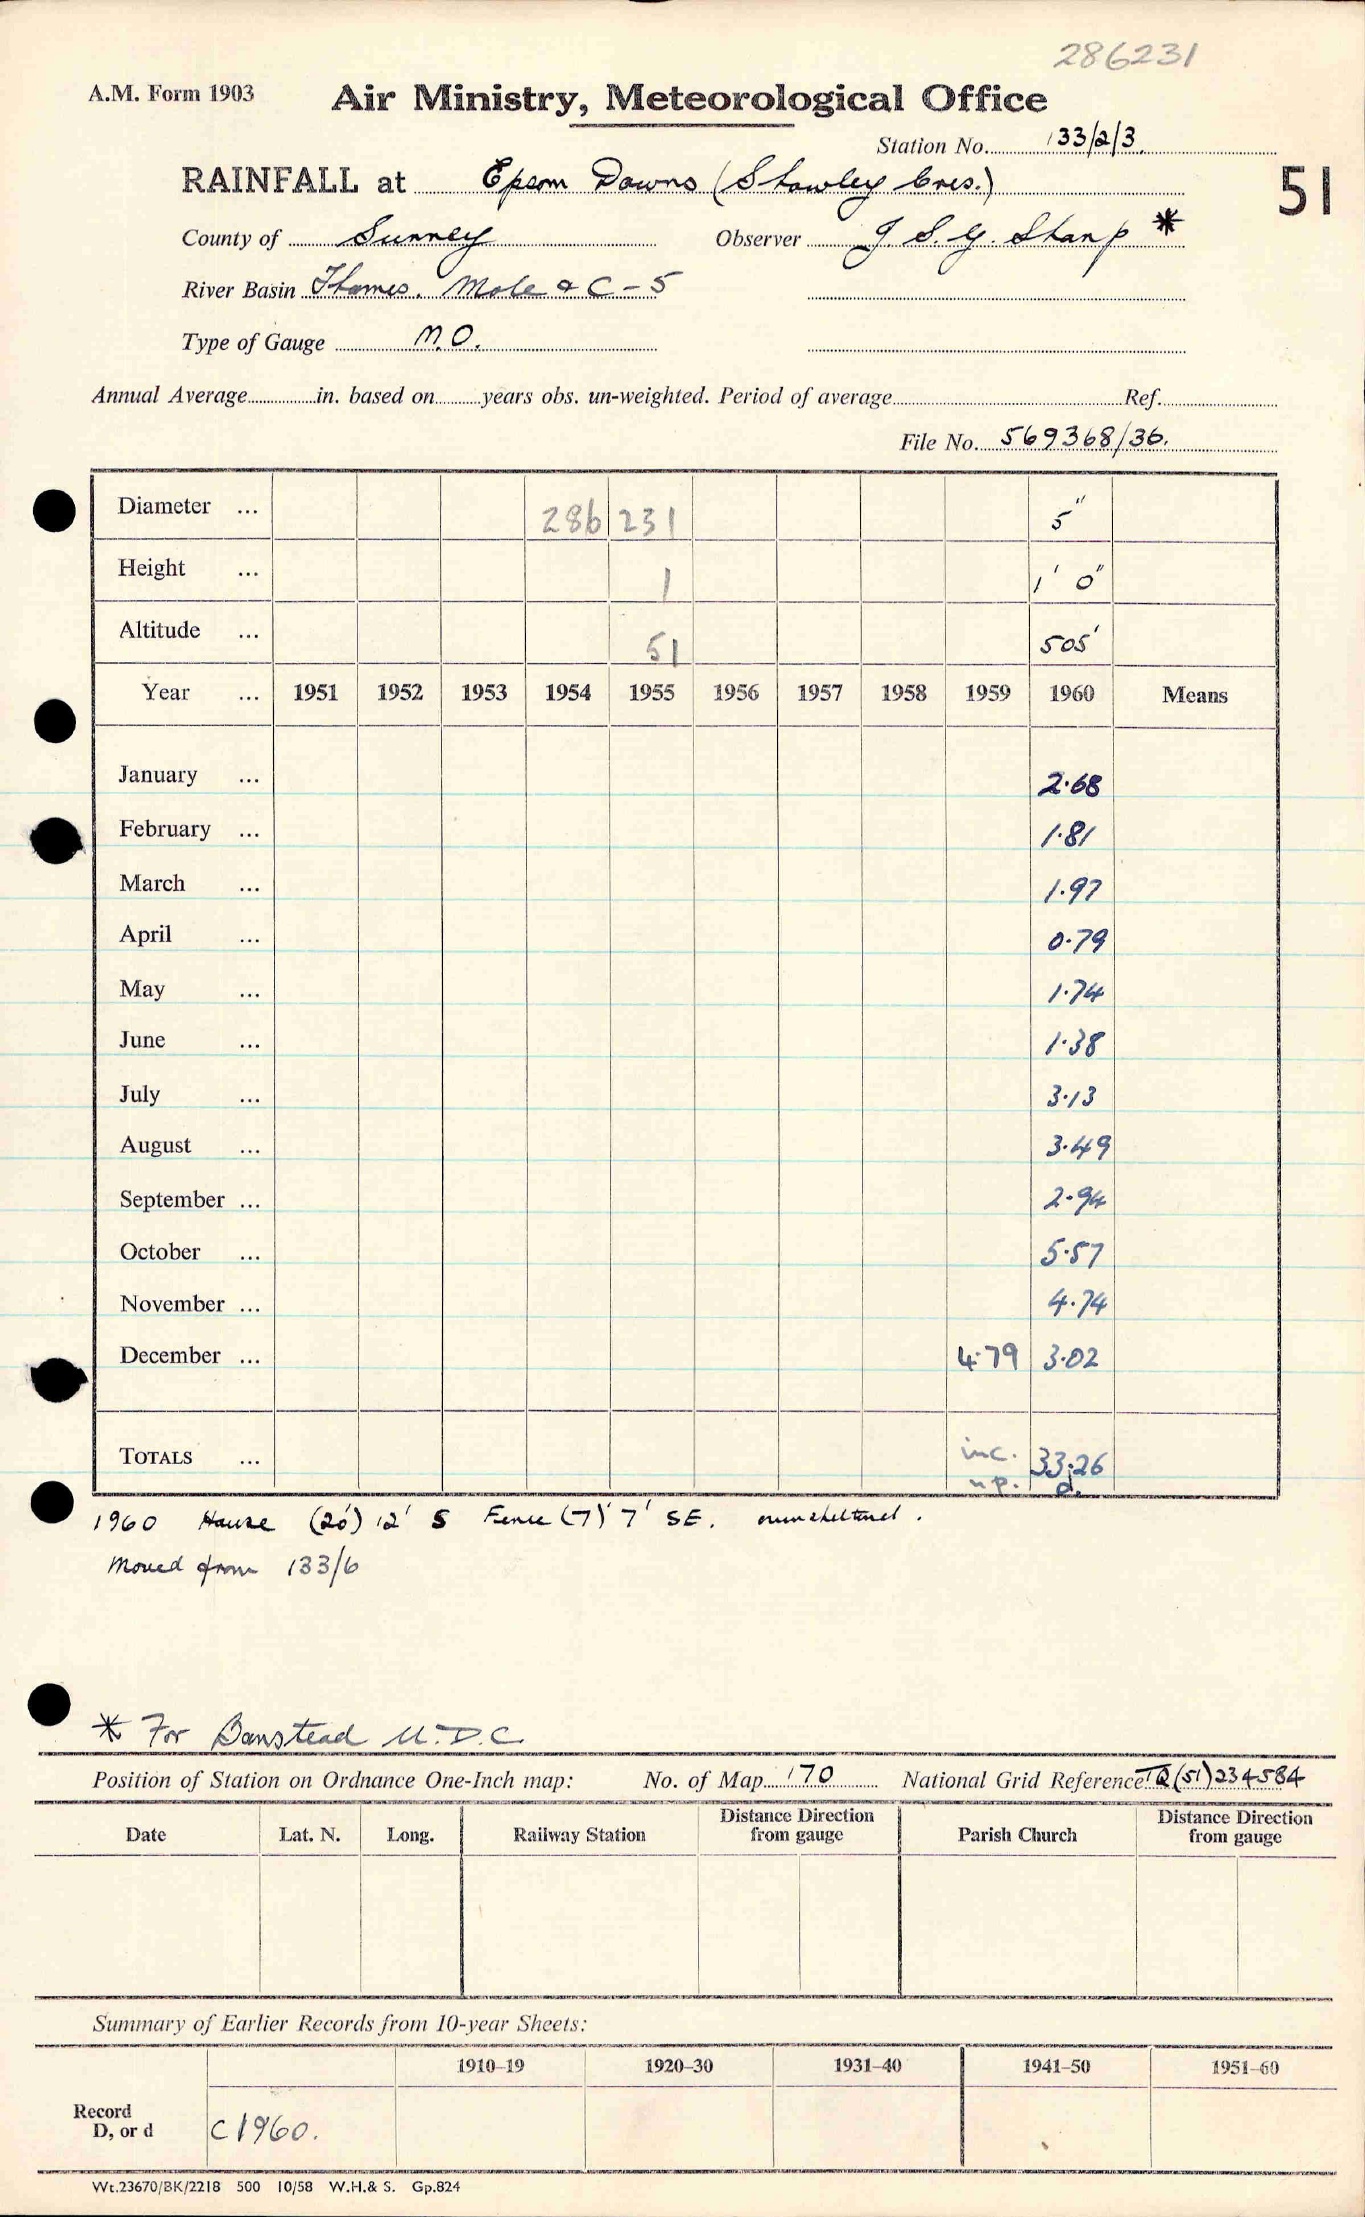 286231
A.M. Form 1903 Air Ministry, Meteorological Office
Station No. 133/2/3.
RAINFALL at Epsom Downs (Shawley Cres.) 51
County of Surrey Observer J. S. G. Sharp *
River Basin Thames. Mole & C-5
Type of Gauge M.O.
Annual Average in. based on years obs. un-weighted. Period of average Ref.
File No. 569368/36.
Diameter ... 286 231 5"
Height ... 1 1' 0"
Altitude ... 51 505'
Year ... 1951 1952 1953 1954 1955 1956 1957 1958 1959 1960 Means
January ... 2.68
February ... 1.81
March ... 1.97
April ... 0.79
May ... 1.74
June ... 1.38
July ... 3.13
August ... 3.49
September ... 2.94
October ... 5.57
November ... 4.74
December ... 4.79 3.02
TOTALS ... inc. 33.26
n.p. d.
1960 House (20') 12' S Fence (7)' 7' SE. oversheltered.
Moved from 133/6
* For Banstead U.D.C
Position of Station on Ordnance One-Inch map: No. of Map 170 National Grid Reference TQ(51)234584
Date Lat. N. Long. Railway Station Distance Direction from gauge Parish Church Distance Direction from gauge
Summary of Earlier Records from 10-year Sheets:
1910-19 1920-30 1931-40 1941-50 1951-60
Record
D, or d C1960.
Wt.23670/BK/2218 500 10/58 W.H.& S. Gp.824